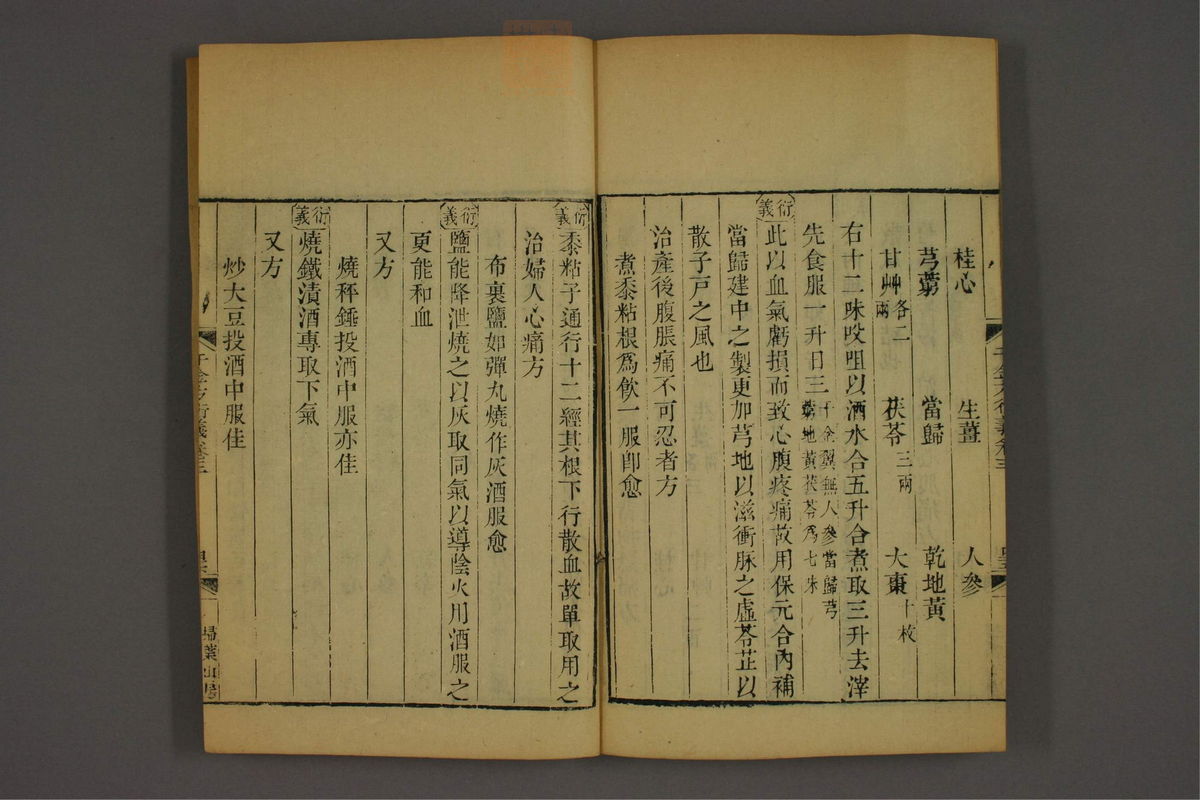 桂心 生薑 人參
芎藭 當歸 乾地黃
甘艸各二兩 茯苓三兩 大棗十枚
右十二味㕮咀以酒水合五升合煮取三升去滓
先食服一升日三千金翼無人參當歸芎藭地黃茯苓爲七味
衍義此以血氣虧損而致心腹疼痛故用保元合內補
當歸建中之製更加芎地以滋衝脉之虛苓芷以
散子戸之風也
治產後腹脹痛不可忍者方
煮黍粘根爲飲一服卽愈
衍義黍粘子通行十二經其根下行散血故單取用之
治婦人心痛方
布裹鹽如彈丸燒作灰酒服愈
衍義鹽能降泄燒之以灰取同氣以導陰火用酒服之
更能和血
又方
燒秤錘投酒中服亦佳
衍義燒鐵漬酒專取下氣
又方
炒大豆投酒中服佳
掃葉山房